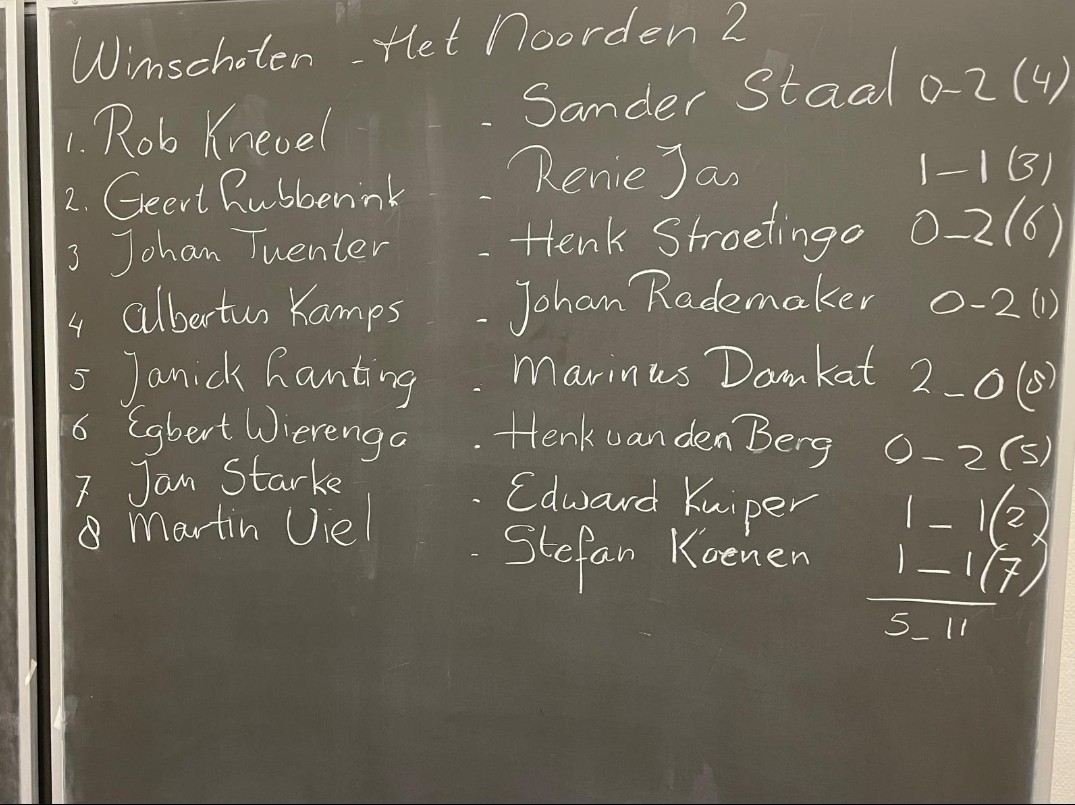 Winschoten - Het Noorden 2
1. Rob Knevel - Sander Staal 0-2 (4)
2. Geert Lubbenink - Renie Jas 1-1 (3)
3 Johan Tuenter - Henk Stroetinga 0-2 (6)
4 Albertus Kamps - Johan Rademaker 0-2 (1)
5 Janick Lanting - Marinus Damkat 2-0 (8)
6 Egbert Wierenga - Henk van den Berg 0-2 (5)
7 Jan Starke - Edward Kuiper 1-1 (2)
8 Martin Viel - Stefan Koenen 1-1 (7)
5-11